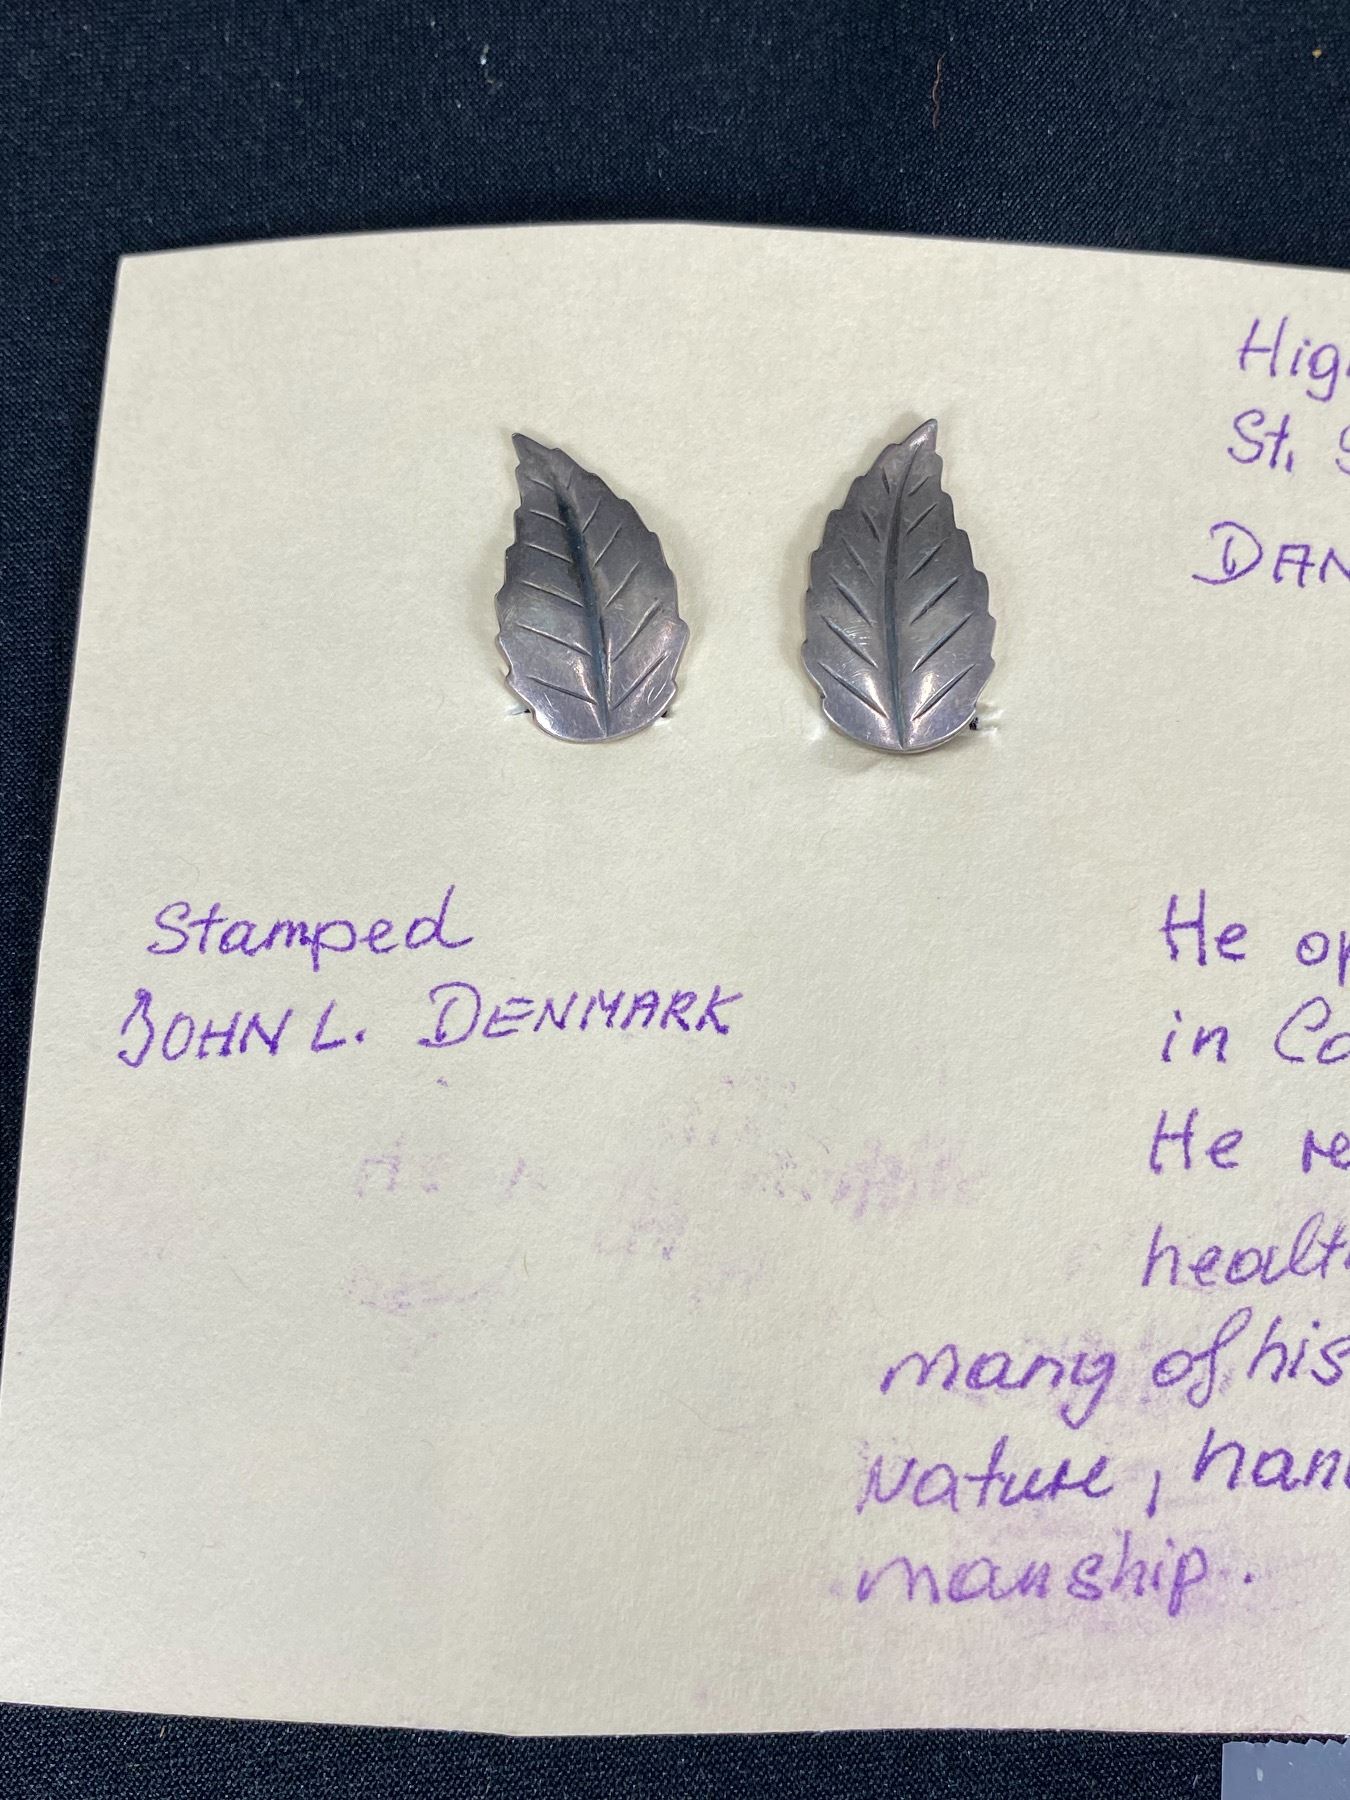 Hig
St. S
DAN
Stamped
JOHN L. DENMARK
He op
in Co
He re
healt
many of his
Nature, han
manship.